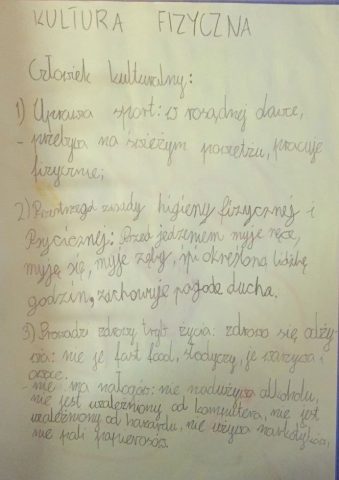 KULTURA FIZYCZNA
Człowiek kulturalny:
1) Uprawia sport: w rosądnej dawce,
- przebywa na świeżym powietrzu, pracuje
fizycznie;
2) Przestrzega zasady higieny fizycznej i
Psycicznej: Przed jedzeniem myje ręce,
myje się, myje zęby, śpi określoną liczbę
godzin, zachowuje pogodę ducha.
3) Prowadzi zdrowy tryb życia: zdrowo się odży-
wia: nie je fast food, słodyczy, je warzywa i
owoce.
- nie ma nałogów: nie nadużywa alkoholu,
nie jest uzależniony od komputera, nie jest
uzależniony od hazardu, nie używa narkotyków,
nie pali papierosów.